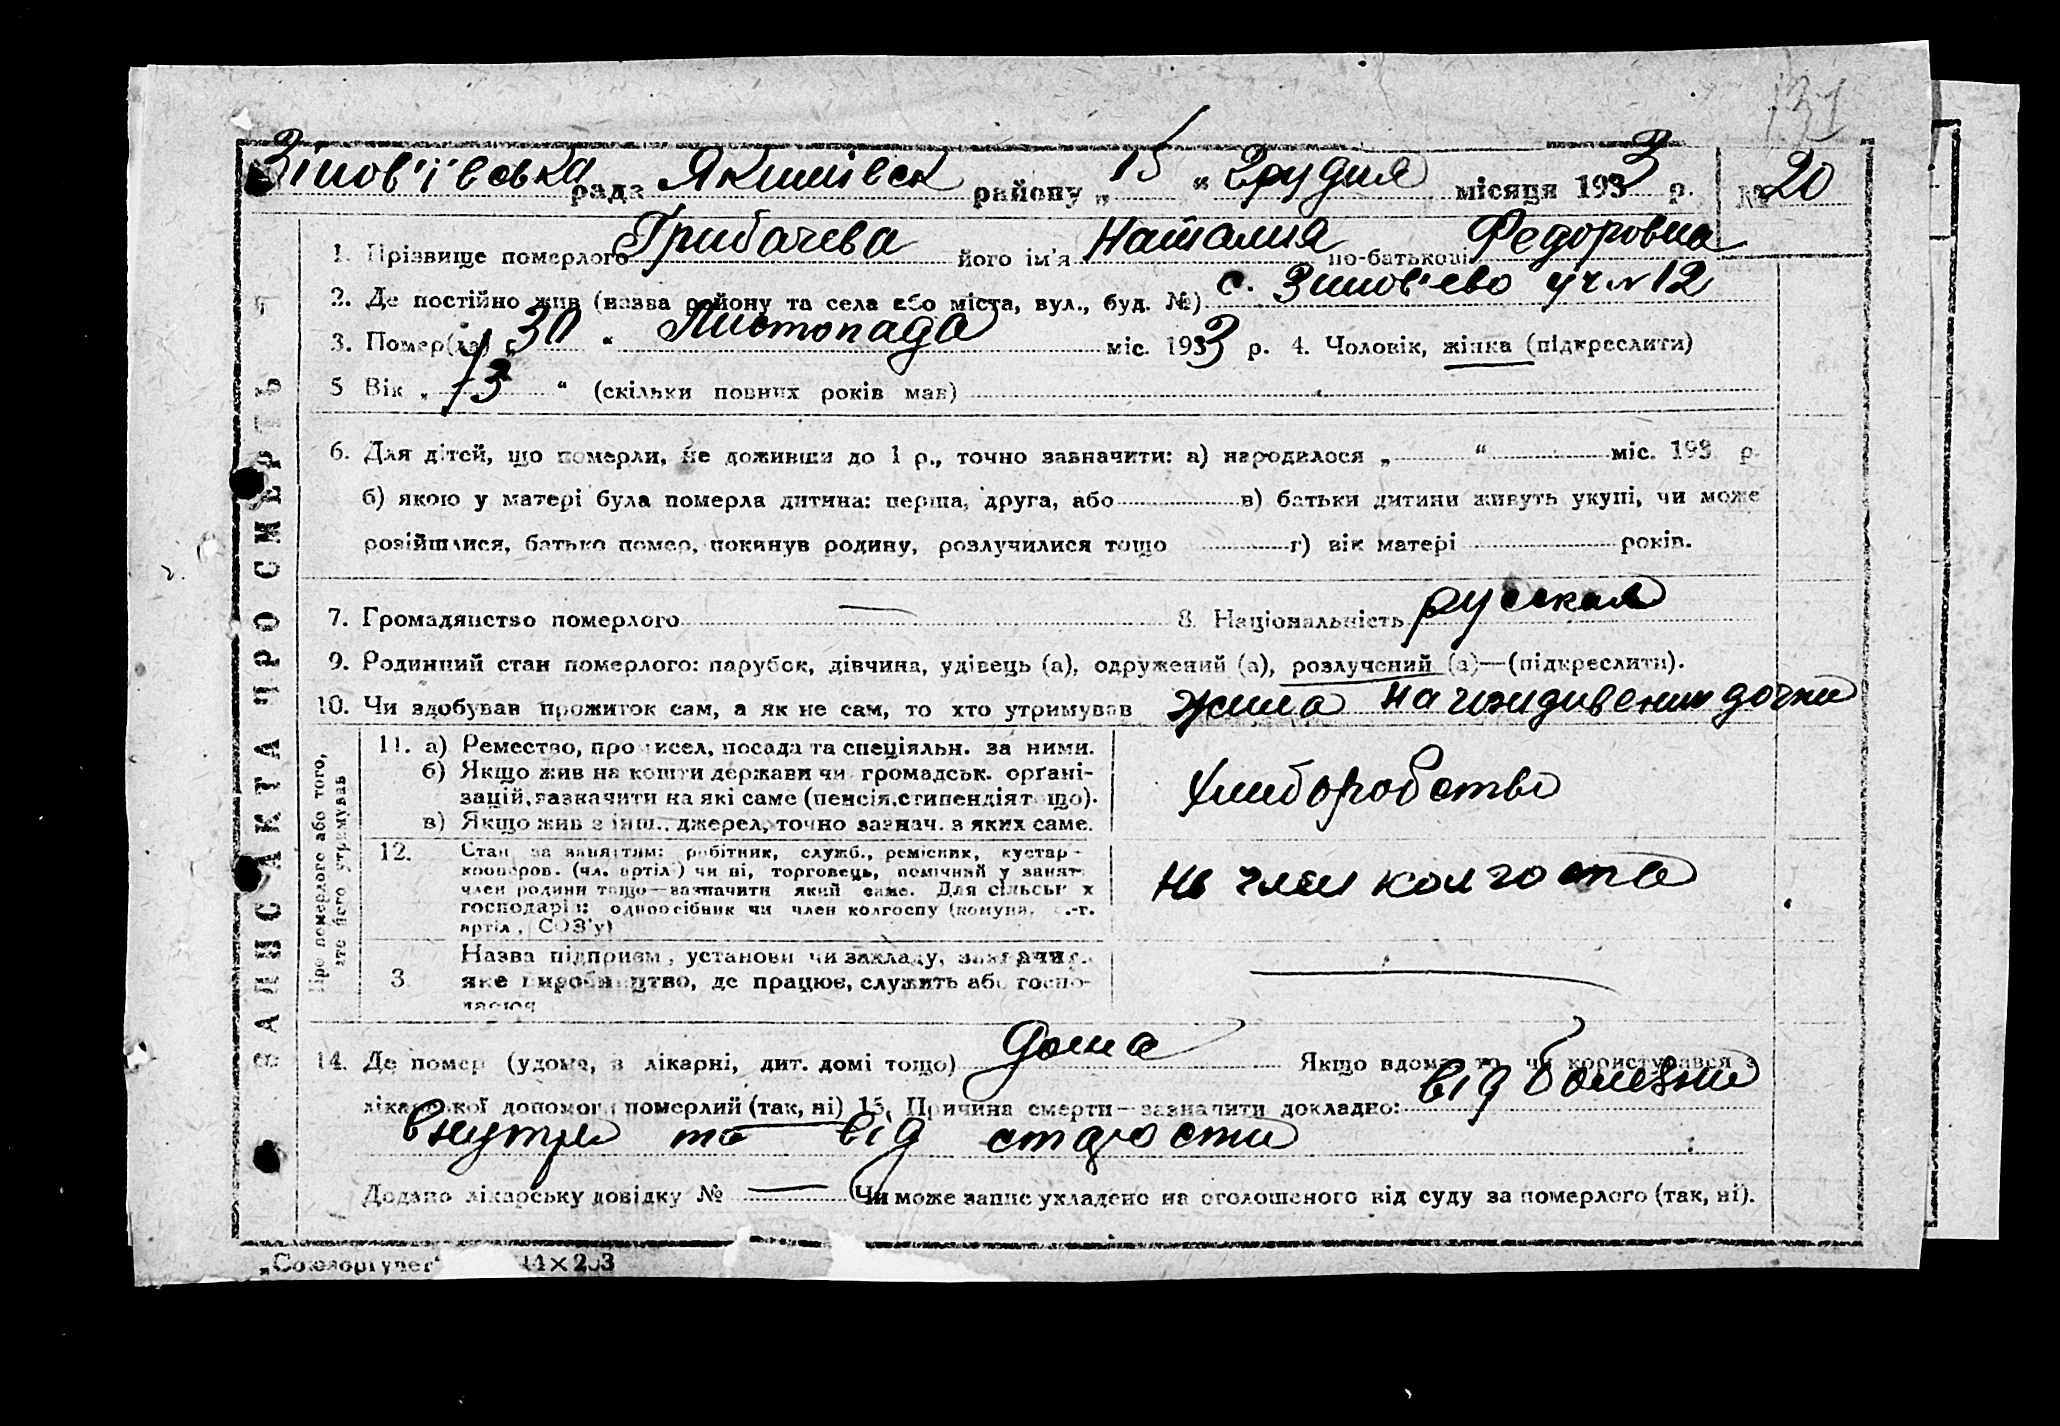 131
Зінов'ївська рада Якимівск району „ 15 “ Грудня місяця 1933 р. № 20
ЗАПИС АКТА ПРО СМЕРТЬ
1. Прізвище померлого Грибачева його ім'я Наталия по-батькові Федоровна
2. Де постійно жив (назва району та села або міста, вул., буд. №) с. Зинов'ево уч N 12
3. Помер(ла) „ 30 “ Листопада міс. 1933 р. 4. Чоловік, жінка (підкреслити)
5 Вік „ 73 “ (скільки повних років мав)
6. Для дітей, що померли, не доживши до 1 р., точно зазначити: а) народилося „ “ міс. 193 р.
б) якою у матері була померла дитина: перша, друга, або в) батьки дитини живуть укупі, чи може
розійшлися, батько помер, покинув родину, розлучилися тощо г) вік матері років.
7. Громадянство померлого — 8. Національність русская
9. Родинний стан померлого: парубок, дівчина, удівець (а), одружений (а), розлучений (а)—(підкреслити).
10. Чи здобував прожиток сам, а як не сам, то хто утримував жила на иждивении дочки
Про померлого або того,
хто його утримував
11. а) Ремество, промисел, посада та спеціяльн. за ними.
б) Якщо жив на кошти держави чи громадськ. органі-
зацій, зазначити на які саме (пенсія, стипендія тощо).
в) Якщо жив з інш. джерел, точно зазнач. з яких саме.
Хлиборобство
12. Стан за заняттям: робітник, служб., ремісник, кустар-
кооперов. (чл. артілі) чи ні, торговець, помічний у занят.
член родини тощо—зазначити який саме. Для сільськ х
господарів: одноосібник чи член колгоспу (комуна, с.-г.
артіл, СОЗ'у)
не член колгоспа
3. Назва підприєм, установи чи закладу, зазначи
яке виробництво, де працює, служить або госпо-
дарює
—
14. Де помер (удома, в лікарні, дит. домі тощо) дома Якщо вдома, то чи користувався з
лікарської допомоги померлий (так, ні) 15. Причина смерти—зазначити докладно: від болезни
внутре та від старости
Додано лікарську довідку № — Чи може запис укладено на оголошеного від суду за померлого (так, ні).
„Союзоргучет“ 44×203